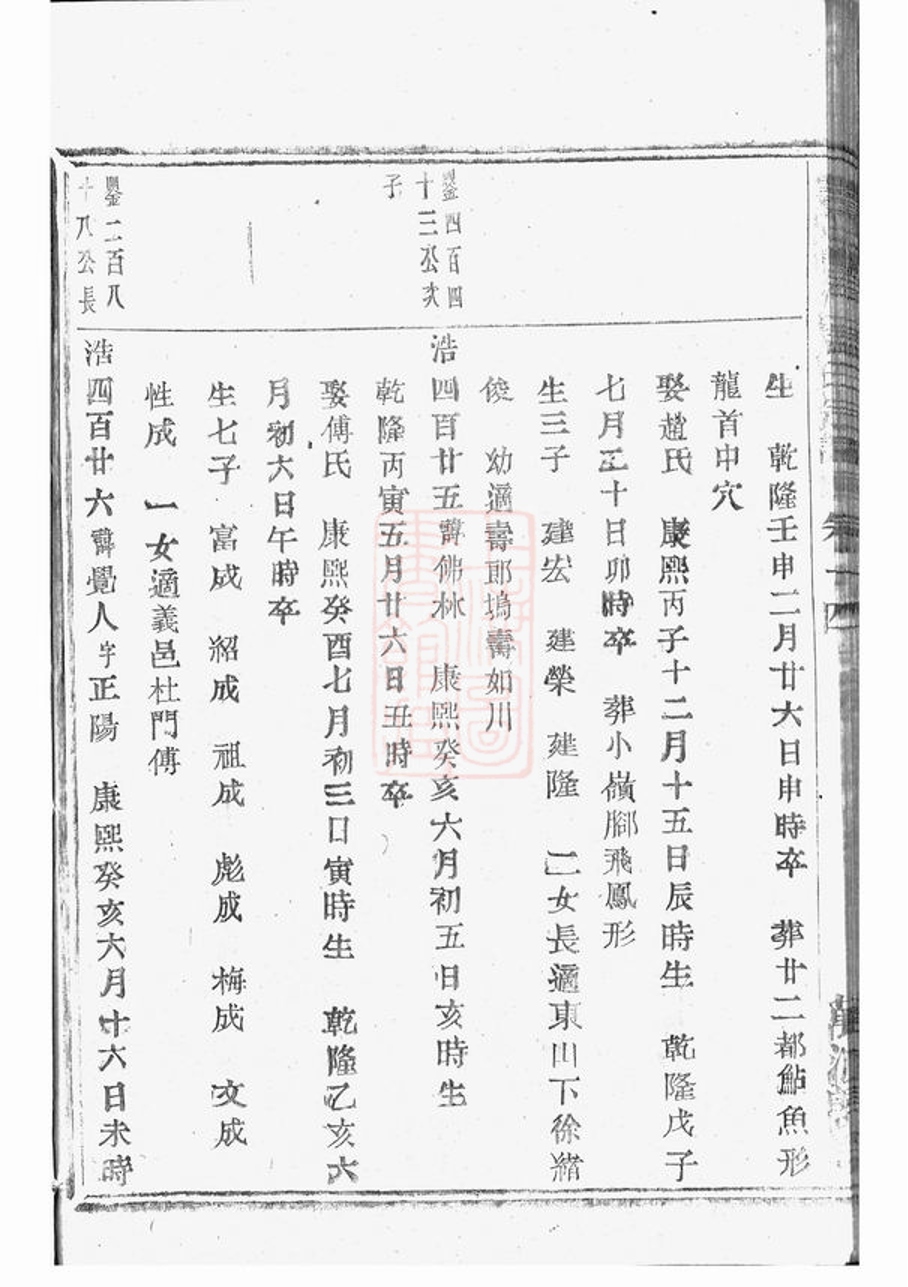 卷十四
生　乾隆壬申二月廿六日申時卒　葬廿二都鮎魚形
龍首中穴
娶趙氏　康熙丙子十二月十五日辰時生　乾隆戊子
七月三十日卯時卒　葬小嶺腳飛鳳形
生三子　建宏　建榮　建隆　二女長適東山下徐緒
俊　幼適壽郎塢壽如川
鑒四百四
十三公次
子
浩四百廿五諱佛林　康熙癸亥六月初五日亥時生
乾隆丙寅五月廿六日丑時卒
娶傅氏　康熙癸酉七月初三日寅時生　乾隆乙亥六
月初六日午時卒
生七子　富成　紹成　祖成　彪成　梅成　文成
性成　一女適義邑杜門傅
鑒二百八
十八公長
浩四百廿六諱覺人字正陽　康熙癸亥六月十六日未時